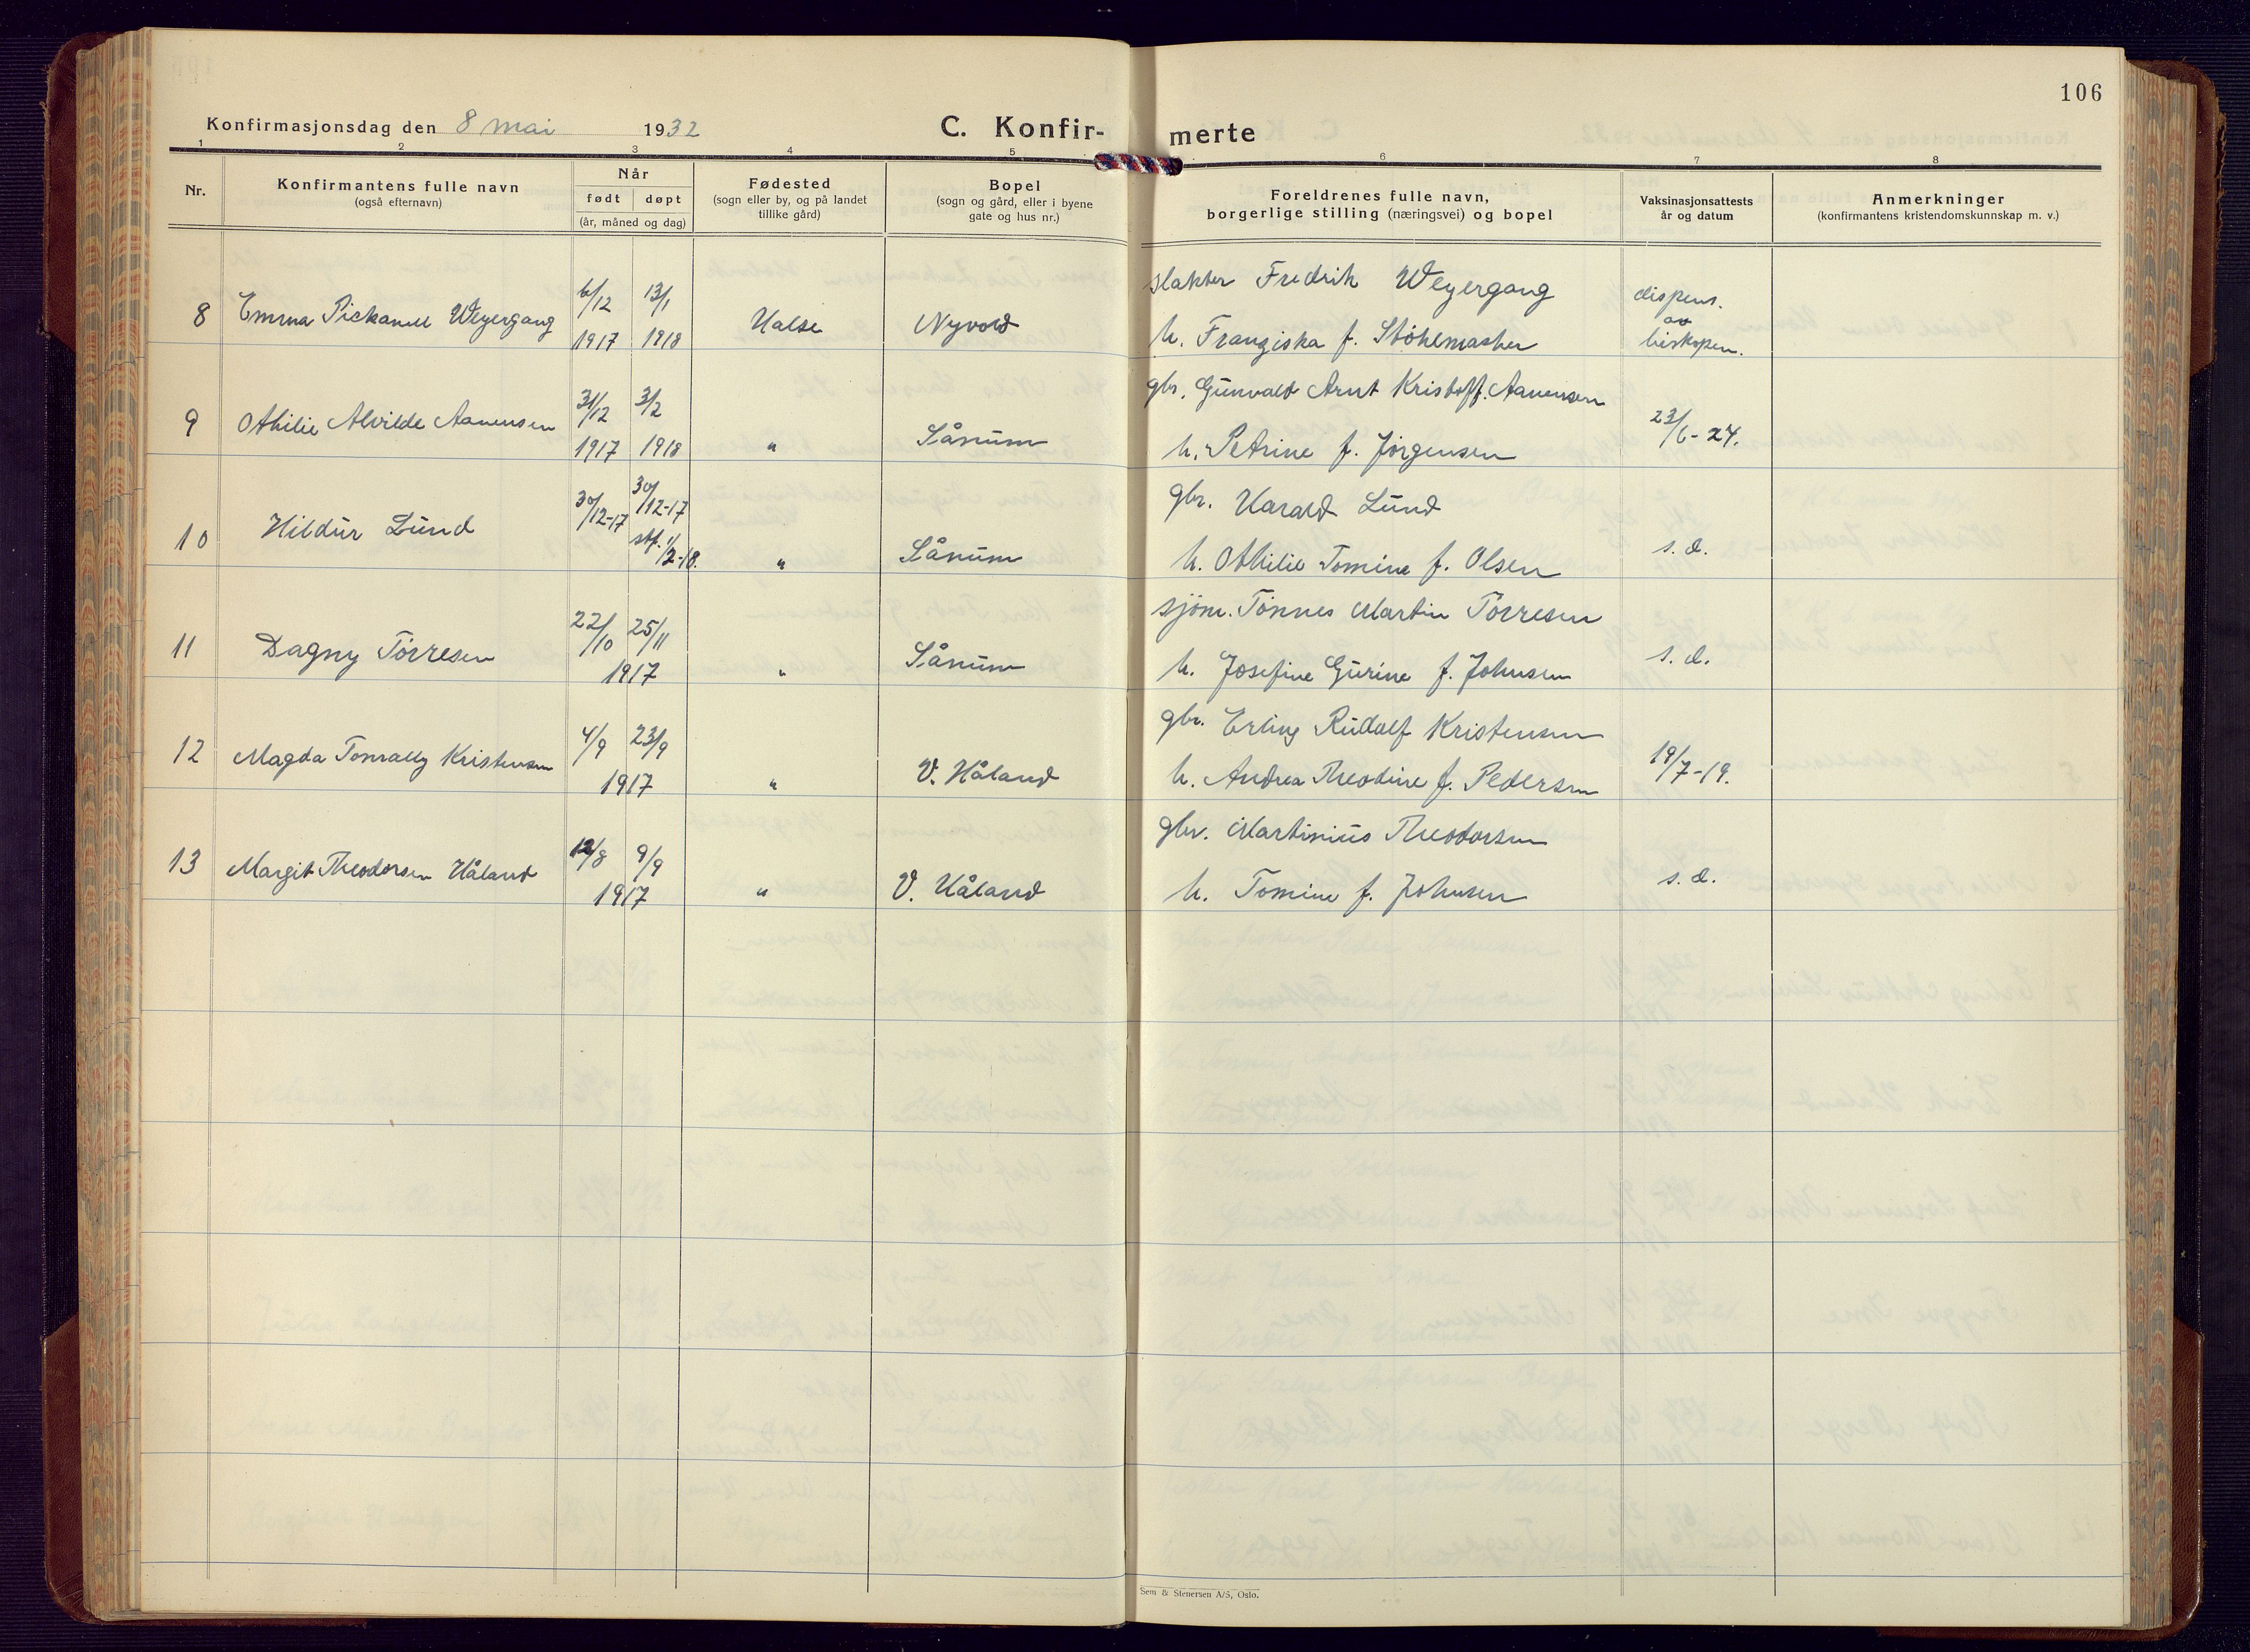 106
Konfirmasjonsdag den 8 mai 1932
C. Konfir-merte
1 2 3 4 5 6 7 8
Nr.
Konfirmantens fulle navn
(også efternavn)
Når
født døpt
(år, måned og dag)
Fødested
(sogn eller by, og på landet
tillike gård)
Bopel
(sogn og gård, eller i byene
gate og hus nr.)
Foreldrenes fulle navn,
borgerlige stilling (næringsvei) og bopel
Vaksinasjonsattests
år og datum
Anmerkninger
(konfirmantens kristendomskunnskap m. v.)
8 Emma Weyergang 6/12 1917 13/1 1918 Halse Nyvold
slakter Fredrik Weyergang
h. Franziska f.
dispens.
av
biskopen.
9 Othilie Alvilde Aanensen 31/12 1917 3/2 1918 " Sånum
gbr. Gunvald Arnt Kristoff. Aanensen
h. Petrine f. Jörgensen
23/6-24.
10 Hildur Lund 30/12-17 30/12-17 stf. 1/2-18. " Sånum
gbr. Harald Lund
h. Othilie Tomine f. Olsen
s. d.
11 Dagny Törresen 22/10 25/11 1917 " Sånum
sjöm. Tönnes Martin Törresen
h. Josefine Gurine f. Johnsen
s. d.
12 Magda Tonrally Kristensen 4/9 23/9 1917 " V. Håland
gbr. Erling Rudolf Kristensen
h. Andrea Theodine f. Pedersen
19/7-19.
13 Margit Theodorsen Håland 12/8 9/9 1917 " V. Håland
gbr. Martinius Theodorsen
h. Tomine f. Johnsen
s. d.
Sem & Stenersen A/S, Oslo.